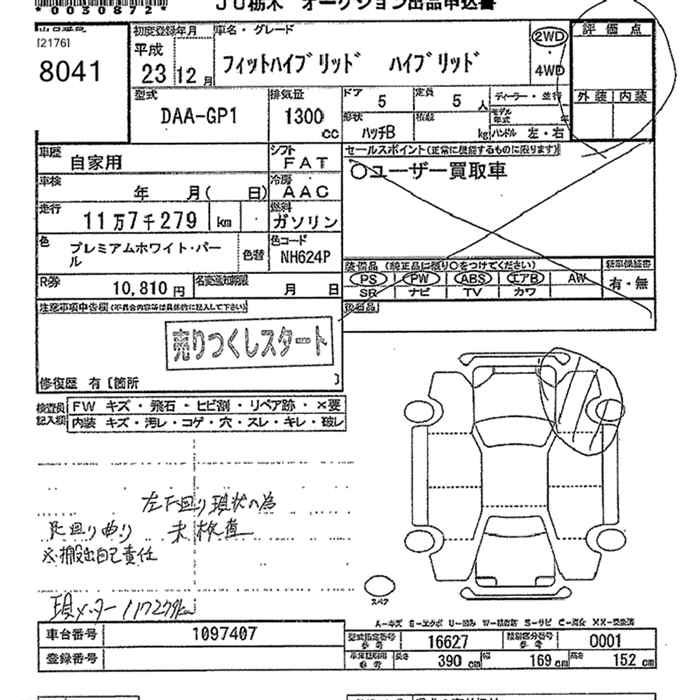 *0030872*
JU栃木 オークション出品申込書
[2176]
8041
初度登録年月
平成
23年12月
車名・グレード
フィットハイブリッド ハイブリッド
2WD
・
4WD
評価点
外装 内装
型式
DAA-GP1
排気量
1300
cc
ドア
5
定員
5人
ディーラー・並行
形状
ハッチB
積載
kg
モデル年式
年
ハンドル 左・右
車歴
自家用
シフト
FAT
車検
年 月( 日)
冷房
AAC
走行
11万7千279 km
燃料
ガソリン
色
プレミアムホワイト・パール
色替
色コード
NH624P
R券
10,810円
名変期限
月 日
セールスポイント(正常に機能するものに限ります)
○ユーザー買取車
装備品(純正品に限り○をつけてください)
PS PW ABS エアB AW
SR ナビ TV カワ
新車保証書
有・無
後備品
注意事項申告欄(不具合内容等は具体的に記入して下さい)
売りつくしスタート
修復歴 有〔箇所 〕
検査員記入欄
FW キズ・飛石・ヒビ割・リペア跡・×要
内装 キズ・汚レ・コゲ・穴・スレ・キレ・破レ
左下回り現状の為
足回り曲り 未検査
※搬出自己責任
現メーター117279km
スペア
A-キズ E-エクボ U-凹み W-補修跡 S-サビ C-腐食 XX-交換済
車台番号
1097407
登録番号
型式指定番号
参考
16627
類別区分番号
参考
0001
車両寸法
参考
長さ
390 cm
幅
169 cm
高さ
152 cm